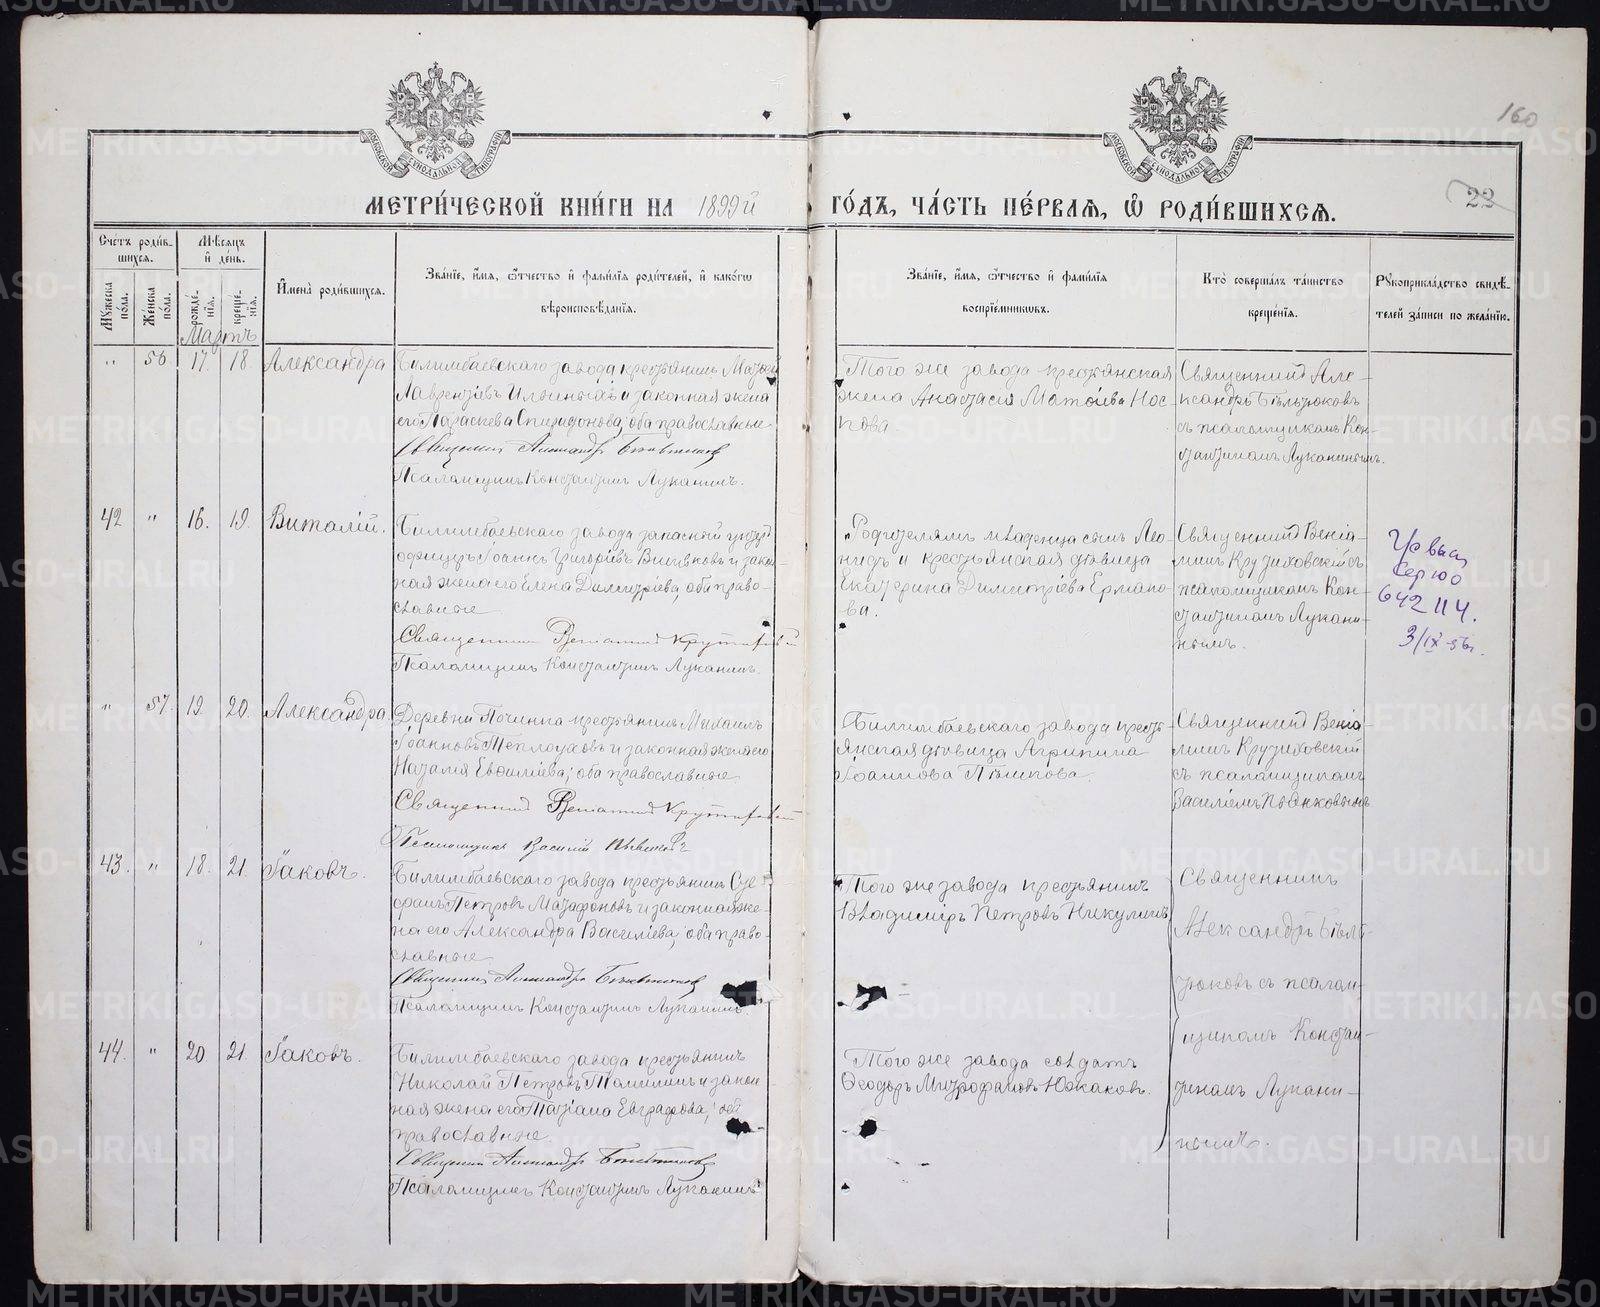 160
22
МОСКОВСКОЙ СУНОДАЛЬНОЙ ТИПОГРАФІИ
МОСКОВСКОЙ СУНОДАЛЬНОЙ ТИПОГРАФІИ
МЕТРИ́ЧЕСКОЙ КНИ́ГИ НА 1899й ГО́ДЪ, ЧА́СТЬ ПЕ́РВАѦ, Ѡ РОДИ́ВШИХСѦ.
Сче́тъ роди́в-
шихся.
Мѣ́сяцъ
и҆ де́нь.
Мꙋ́жеска по́ла.
Же́нска по́ла.
рожде́-
нїѧ.
креще́-
нїѧ.
И҆мена̀ роди́вшихся.
Зва́нїе, и҆́мѧ, ѻ҆́тчество и҆ фамѵ́лїѧ роди́телей, и҆ како́гѡ
вѣроисповѣ́данїѧ.
Зва́нїе, и҆́мѧ, ѻ҆́тчество и҆ фамѵ́лїѧ
воспрїе́мниковъ.
Кто̀ соверша́лъ та́инство
креще́нїѧ.
Рꙋкоприкла́дство свидѣ́-
телей за́писи по жела́нїю.
Мартъ
" 56 17. 18. Александра
Билимбаевскаго завода крестьянинъ Матѳей
Лаврентіевъ Ильиныхъ и законная жена
его Параскева Спиридонова; оба православные
Священникъ Александръ Бѣльтюковъ
Псаломщикъ Константинъ Луканинъ.
Того же завода крестьянская
жена Анастасія Матѳіева Нос-
кова
Священникъ Але-
ксандръ Бѣльтюковъ
съ псаломщикомъ Кон-
стантиномъ Луканинымъ.
42 " 16. 19. Виталій.
Билимбаевскаго завода запасной унтеръ
офицеръ Іоаннъ Григоріевъ и закон-
ная жена его Елена Димитріева, оба право-
славные
Священникъ Веніаминъ
Псаломщикъ Константинъ Луканинъ.
Родителямъ младенца сынъ Лео-
нидъ и крестьянская дѣвица
Екатерина Димитріева Ермако-
ва.
Священникъ Веніа-
минъ съ
псаломщикомъ Кон-
стантиномъ Лукани-
нымъ.
642114.
3/IX-56г.
" 57. 19. 20. Александра.
Деревни Починка крестьянинъ Михаилъ
Іоанновъ Теплоуховъ и законная жена его
Наталія Евѳиміева; оба православные
Священникъ Веніаминъ
Псаломщикъ Василій Пьянковъ
Билимбаевскаго завода кресть-
янская дѣвица Агрипина
Іоаннова Пѣшкова.
Священникъ Веніа-
минъ
съ псаломщикомъ
Василіемъ Пьянковымъ
43. " 18. 21. Іаковъ.
Билимбаевскаго завода крестьянинъ Сте-
фанъ Петровъ и законная же-
на его Александра Василіева, оба право-
славные
Священникъ Александръ Бѣльтюковъ
Псаломщикъ Константинъ Луканинъ.
Того же завода крестьянинъ
Владиміръ Петровъ Никулинъ
Священникъ
Александръ Бѣль-
тюковъ съ псалом-
щикомъ Констан-
тиномъ Лукани-
нымъ.
44. " 20 21. Іаковъ.
Билимбаевскаго завода крестьянинъ
Николай Петровъ Томилинъ и закон-
ная жена его Татіана Евграфова, оба
православные.
Священникъ Александръ Бѣльтюковъ
Псаломщикъ Константинъ Луканинъ
Того же завода солдатъ
Ѳеодоръ Митрофановъ Южаковъ.
METRIKI.GASO-URAL.RU